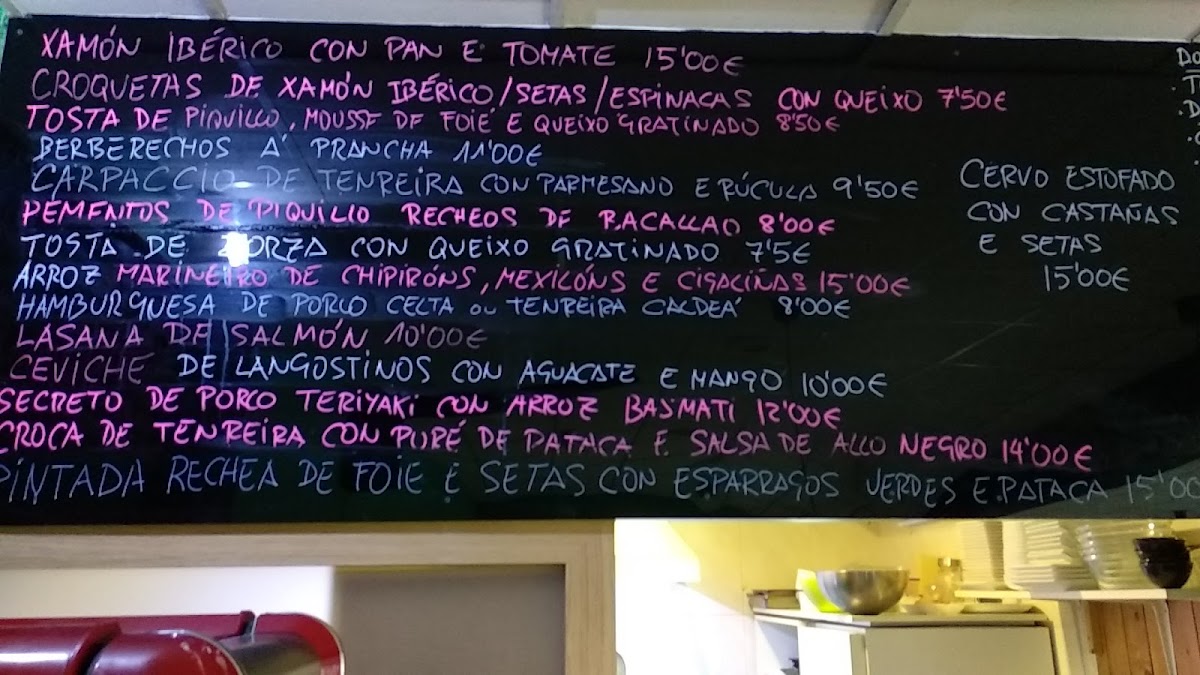 XAMÓN IBÉRICO CON PAN E TOMATE 15'00€
CROQUETAS DE XAMÓN IBÉRICO/SETAS/ESPINACAS CON QUEIXO 7'50€
TOSTA DE PIQUILLO, MOUSSE DE FOIE E QUEIXO GRATINADO 8'50€
BERBERECHOS Á PRANCHA 11'00€
CARPACCIO DE TENREIRA CON PARMESANO E RÚCULA 9'50€
PEMENTOS DE PIQUILLO RECHEOS DE BACALLAO 8'00€
TOSTA DE ZORZA CON QUEIXO GRATINADO 7'5€
ARROZ MARINEIRO DE CHIPIRÓNS, MEXILÓNS E CIGALIÑAS 15'00€
HAMBURGUESA DE PORCO CELTA OU TENREIRA CALDEÁ 8'00€
LASANA DE SALMÓN 10'00€
CEVICHE DE LANGOSTINOS CON AGUACATE E MANGO 10'00€
SECRETO DE PORCO TERIYAKI CON ARROZ BASMATI 12'00€
CROCA DE TENREIRA CON PURÉ DE PATACA E SALSA DE ALLO NEGRO 14'00€
PINTADA RECHEA DE FOIE E SETAS CON ESPARRAGOS VERDES E PATACA 15'00
CERVO ESTOFADO
CON CASTAÑAS
E SETAS
15'00€